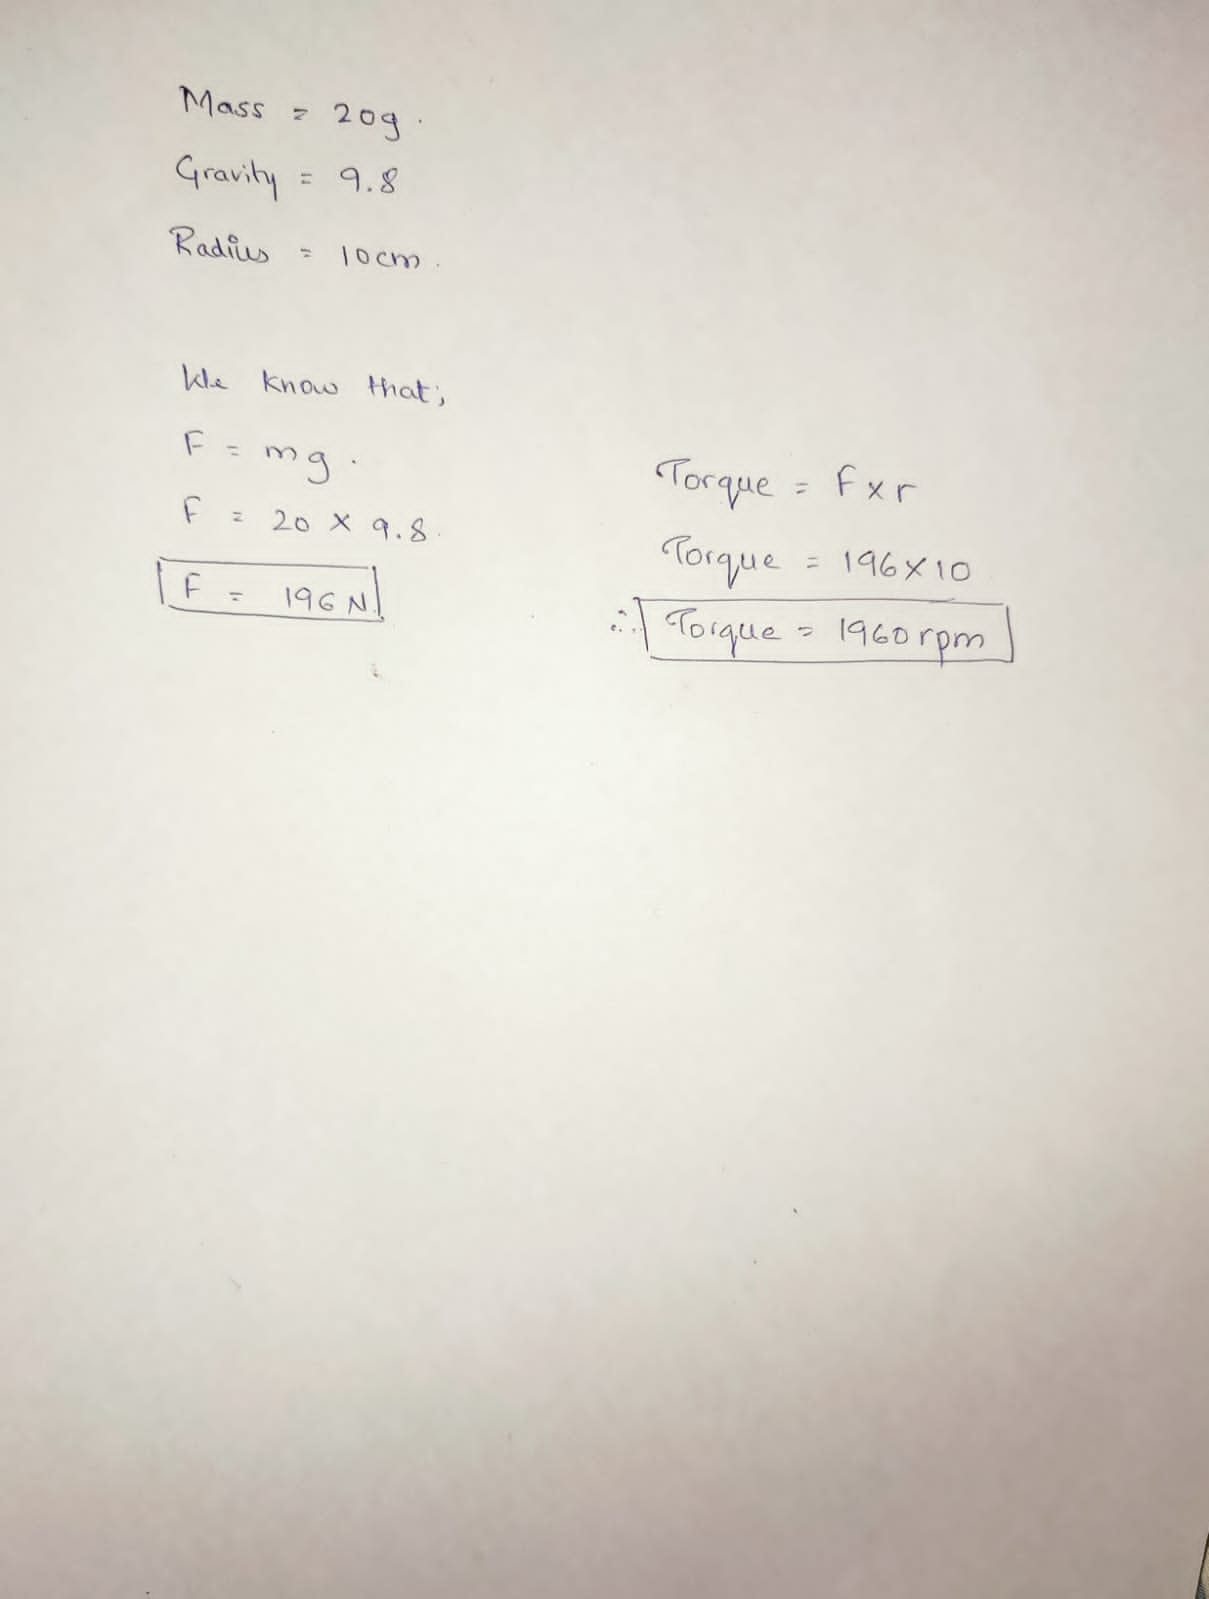 Mass = 20g.
Gravity = 9.8
Radius = 10cm.
We know that;
F = mg.
F = 20 × 9.8.
F = 196 N.
Torque = F×r
Torque = 196×10
∴ Torque = 1960rpm